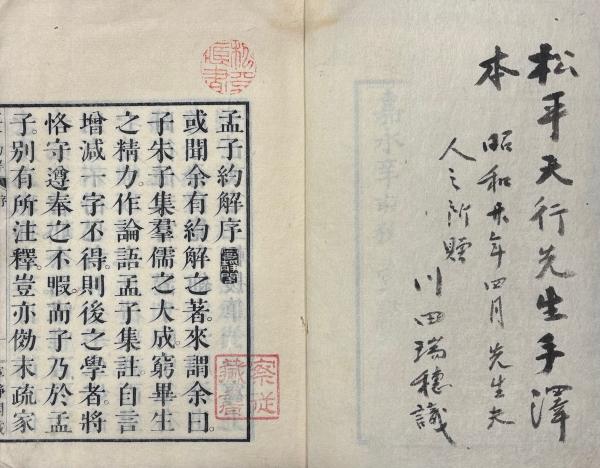 松平天行先生手澤
本 昭和廿年四月 先生夫
人之所贈 川田瑞穗識
孟子約解序
或聞余有約解之著。來謂余曰。
子朱子集羣儒之大成。窮畢生
之精力作論語孟子集註自言
增減一字不得。則後之學者。將
恪守遵奉之不暇。而子乃於孟
子。別有所注釋。豈亦傚末疏家